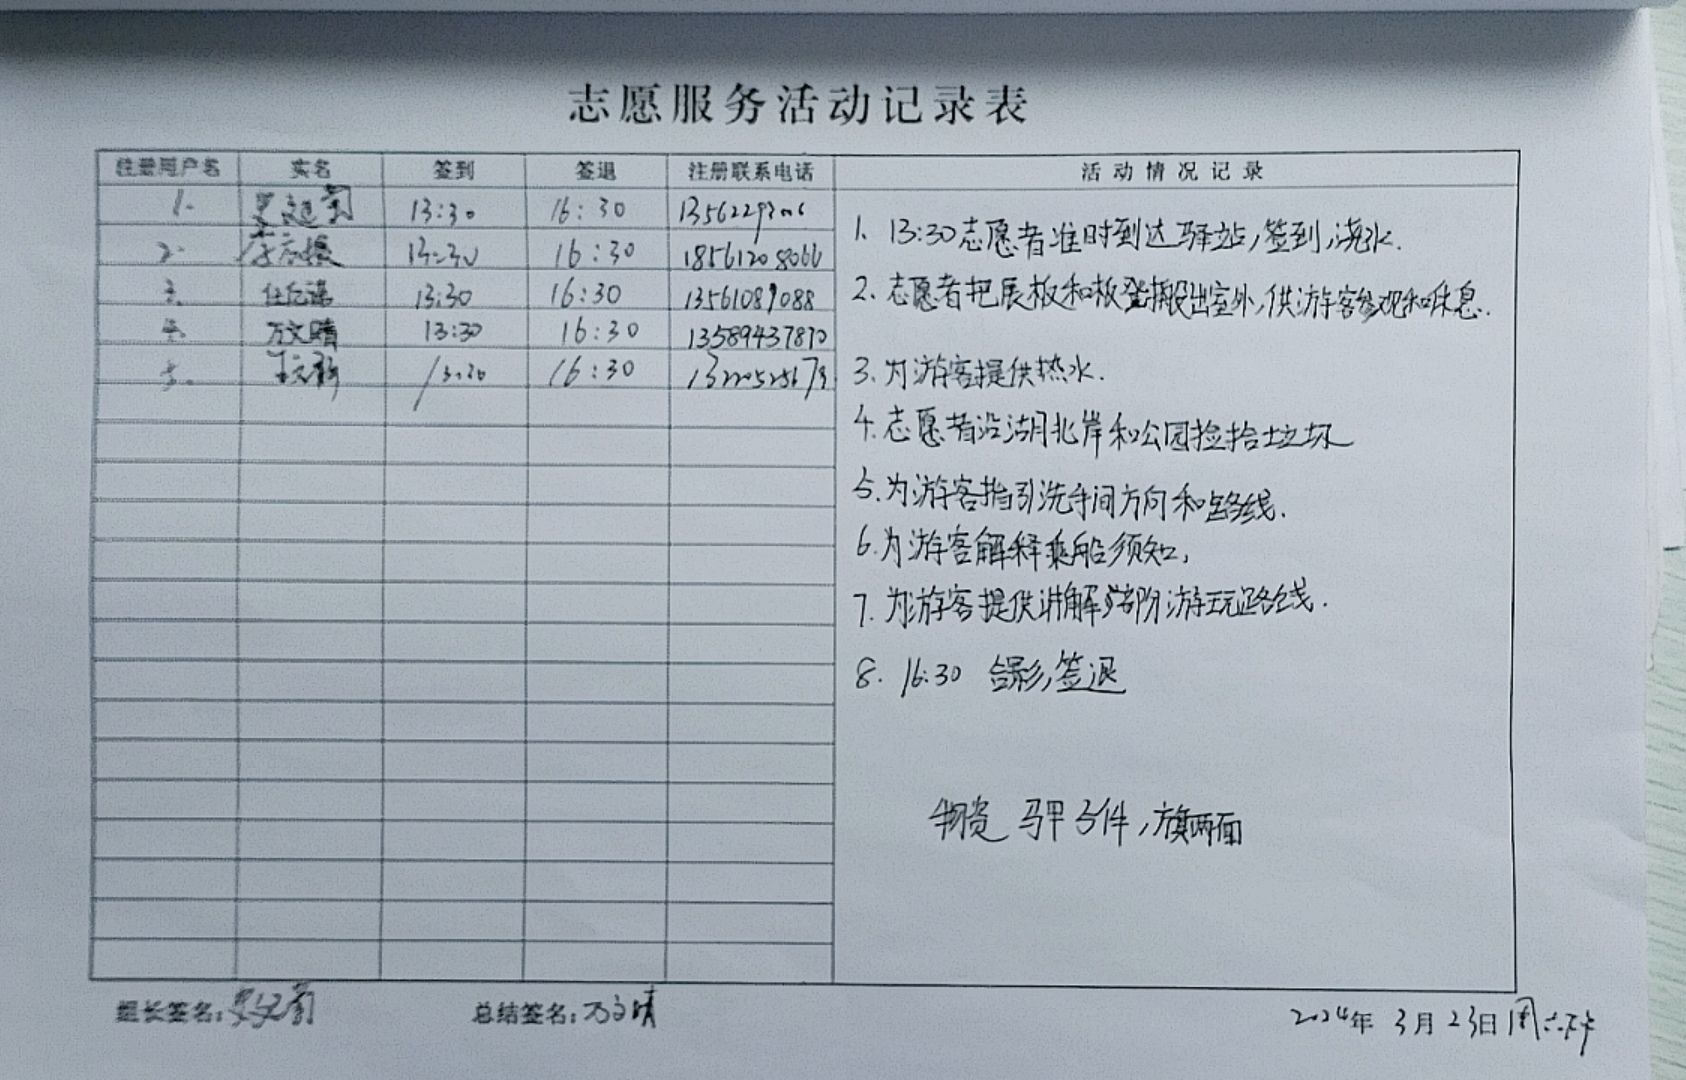 志愿服务活动记录表
注册用户名 实名 签到 签退 注册联系电话 活动情况记录
1. 13:30 16:30
2. 13:30 16:30 18561208066
3. 13:30 16:30 13561089088
4. 万文晴 13:30 16:30 13589437870
5. 13:30 16:30
1. 13:30志愿者准时到达驿站,签到,浇水.
2. 志愿者把展板和板凳搬出室外,供游客参观和休息.
3. 为游客提供热水.
4. 志愿者沿湖北岸和公园捡拾垃圾
5. 为游客指引洗手间方向和路线.
6. 为游客解释乘船须知,
7. 为游客提供讲解 游玩路线.
8. 16:30 合影,签退
物资 马甲3件,旗两面
组长签名:
总结签名:万文晴
2024年3月23日周六下午